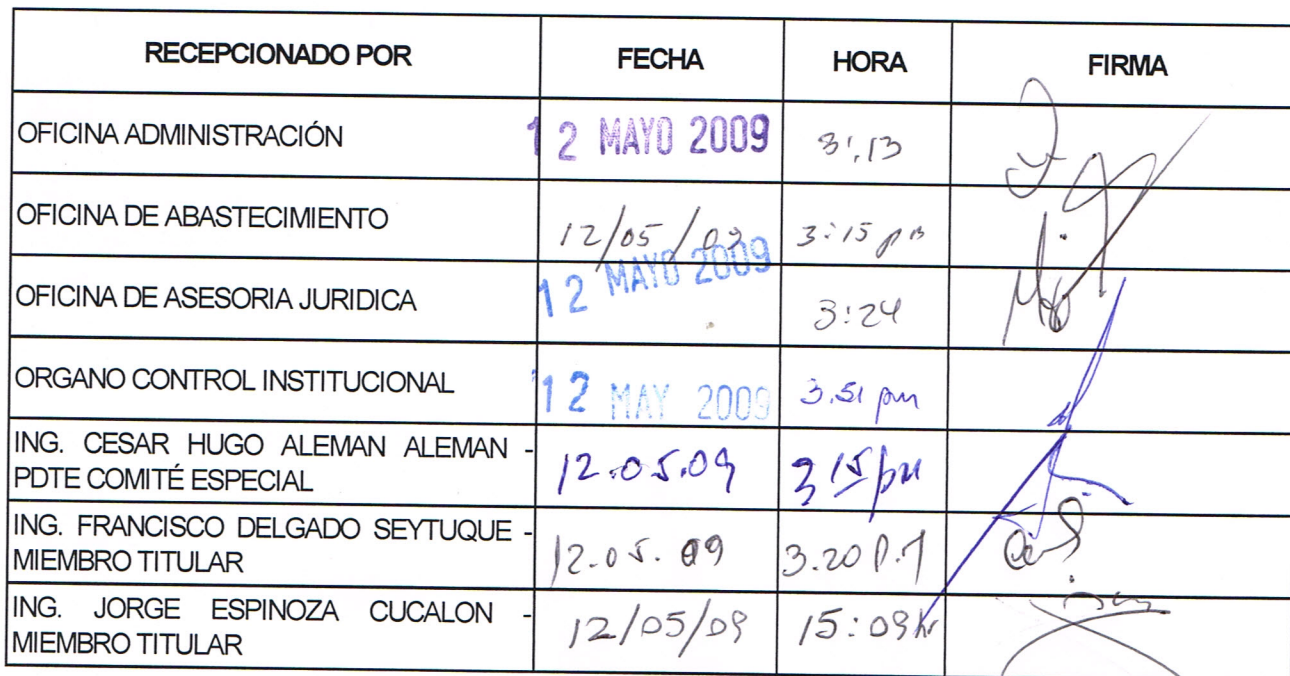 RECEPCIONADO POR FECHA HORA FIRMA
OFICINA ADMINISTRACIÓN 12 MAYO 2009 3:13
OFICINA DE ABASTECIMIENTO 12/05/09 3:15 pm
OFICINA DE ASESORIA JURIDICA 12 MAYO 2009 3:24
ORGANO CONTROL INSTITUCIONAL 12 MAY 2009 3.51 pm
ING. CESAR HUGO ALEMAN ALEMAN -
PDTE COMITÉ ESPECIAL 12.05.09 3 15 pm
ING. FRANCISCO DELGADO SEYTUQUE -
MIEMBRO TITULAR 12.05.09 3.20 P.M
ING. JORGE ESPINOZA CUCALON -
MIEMBRO TITULAR 12/05/09 15:09 hr